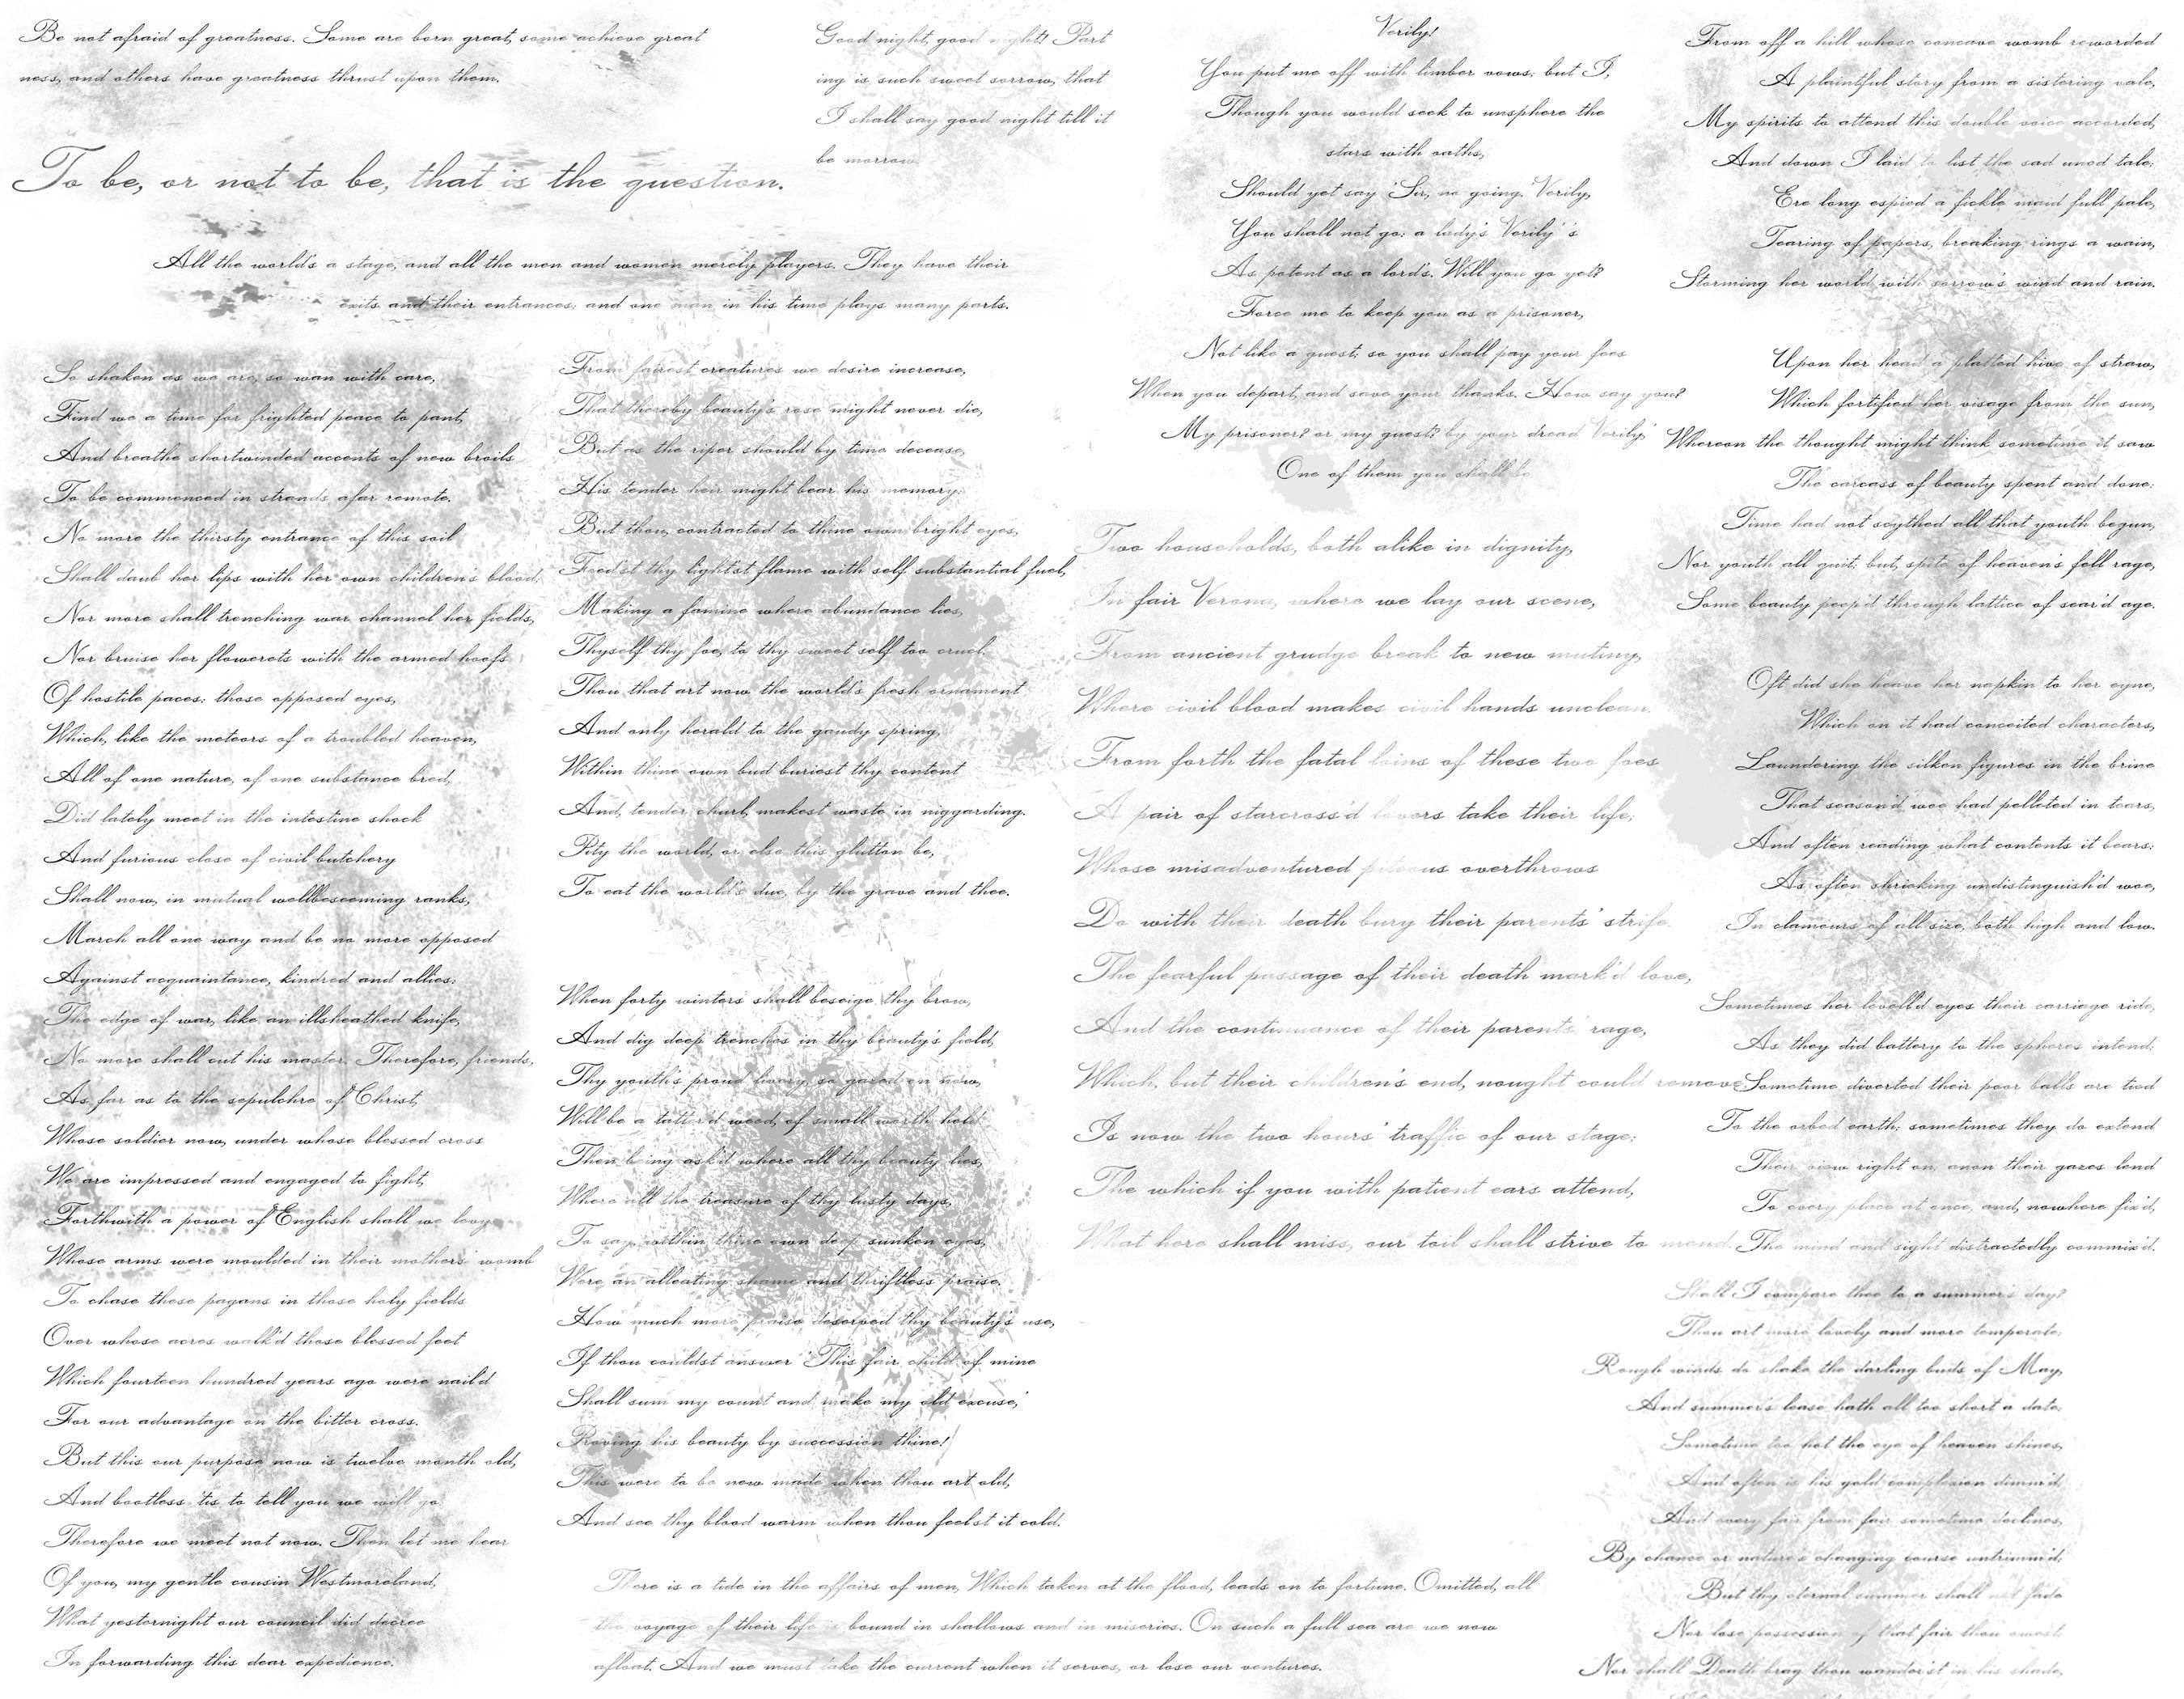 Be not afraid of greatness. Some are born great, some achieve great
ness, and others have greatness thrust upon them.
To be, or not to be, that is the question.
All the world's a stage, and all the men and women merely players. They have their
exits and their entrances; and one man in his time plays many parts.
Good night, good night! Part
ing is such sweet sorrow, that
I shall say good night till it
be morrow.
So shaken as we are, so wan with care,
Find we a time for frighted peace to pant,
And breathe shortwinded accents of new broils
To be commenced in strands afar remote.
No more the thirsty entrance of this soil
Shall daub her lips with her own children's blood;
Nor more shall trenching war channel her fields,
Nor bruise her flowerets with the armed hoofs
Of hostile paces: those opposed eyes,
Which, like the meteors of a troubled heaven,
All of one nature, of one substance bred,
Did lately meet in the intestine shock
And furious close of civil butchery
Shall now, in mutual wellbeseeming ranks,
March all one way and be no more opposed
Against acquaintance, kindred and allies:
The edge of war, like an illsheathed knife,
No more shall cut his master. Therefore, friends,
As far as to the sepulchre of Christ,
Whose soldier now, under whose blessed cross
We are impressed and engaged to fight,
Forthwith a power of English shall we levy
Whose arms were moulded in their mothers' womb
To chase these pagans in those holy fields
Over whose acres walk'd those blessed feet
Which fourteen hundred years ago were nail'd
For our advantage on the bitter cross.
But this our purpose now is twelve month old,
And bootless 'tis to tell you we will go
Therefore we meet not now. Then let me hear
Of you, my gentle cousin Westmoreland,
What yesternight our council did decree
In forwarding this dear expedience.
From fairest creatures we desire increase,
That thereby beauty's rose might never die,
But as the riper should by time decease,
His tender heir might bear his memory:
But thou, contracted to thine own bright eyes,
Feed'st thy light'st flame with self substantial fuel,
Making a famine where abundance lies,
Thyself thy foe, to thy sweet self too cruel.
Thou that art now the world's fresh ornament
And only herald to the gaudy spring,
Within thine own bud buriest thy content
And, tender churl, makest waste in niggarding.
Pity the world, or else this glutton be,
To eat the world's due, by the grave and thee.
When forty winters shall beseige thy brow,
And dig deep trenches in thy beauty's field,
Thy youth's proud livery, so gazed on now,
Will be a tatter'd weed, of small worth held:
Then being ask'd where all thy beauty lies,
Where all the treasure of thy lusty days,
To say, within thine own deep sunken eyes,
Were an alleating shame and thriftless praise.
How much more praise deserved thy beauty's use,
If thou couldst answer 'This fair child of mine
Shall sum my count and make my old excuse,'
Proving his beauty by succession thine!
This were to be new made when thou art old,
And see thy blood warm when thou feelst it cold.
There is a tide in the affairs of men, Which taken at the flood, leads on to fortune. Omitted, all
the voyage of their life is bound in shallows and in miseries. On such a full sea are we now
afloat. And we must take the current when it serves, or lose our ventures.
Verily!
You put me off with limber vows; but I,
Though you would seek to unsphere the
stars with oaths,
Should yet say 'Sir, no going. Verily,
You shall not go: a lady's 'Verily' 's
As potent as a lord's. Will you go yet?
Force me to keep you as a prisoner,
Not like a guest; so you shall pay your fees
When you depart, and save your thanks. How say you?
My prisoner? or my guest? by your dread 'Verily,'
One of them you shall be.
Two households, both alike in dignity,
In fair Verona, where we lay our scene,
From ancient grudge break to new mutiny,
Where civil blood makes civil hands unclean.
From forth the fatal loins of these two foes
A pair of starcross'd lovers take their life;
Whose misadventured piteous overthrows
Do with their death bury their parents' strife.
The fearful passage of their death mark'd love,
And the continuance of their parents' rage,
Which, but their children's end, nought could remove
Is now the two hours' traffic of our stage;
The which if you with patient ears attend,
What here shall miss, our toil shall strive to mend.
From off a hill whose concave womb reworded
A plaintful story from a sistering vale,
My spirits to attend this double voice accorded,
And down I laid to list the sad uned tale;
Ere long espied a fickle maid full pale,
Tearing of papers, breaking rings a wain,
Storming her world with sorrow's wind and rain.
Upon her head a platted hive of straw,
Which fortified her visage from the sun,
Whereon the thought might think sometime it saw
The carcass of beauty spent and done:
Time had not scythed all that youth begun,
Nor youth all quit; but, spite of heaven's fell rage,
Some beauty peep'd through lattice of sear'd age.
Oft did she heave her napkin to her eyne,
Which on it had conceited characters,
Laundering the silken figures in the brine
That season'd woe had pelleted in tears,
And often reading what contents it bears;
As often shrieking undistinguish'd woe,
In clamours of all size, both high and low.
Sometimes her levell'd eyes their carriage ride,
As they did battery to the spheres intend;
Sometime diverted their poor balls are tied
To the orbed earth; sometimes they do extend
Their view right on; anon their gazes lend
To every place at once, and, nowhere fix'd,
The mind and sight distractedly commix'd.
Shall I compare thee to a summer's day?
Thou art more lovely and more temperate:
Rough winds do shake the darling buds of May,
And summer's lease hath all too short a date:
Sometime too hot the eye of heaven shines,
And often is his gold complexion dimm'd;
And every fair from fair sometime declines,
By chance or nature's changing course untrimm'd;
But thy eternal summer shall not fade
Nor lose possession of that fair thou owest;
Nor shall Death brag thou wander'st in his shade,